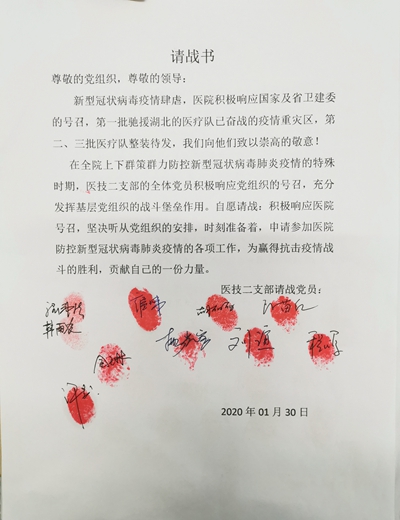 请战书
尊敬的党组织，尊敬的领导：
新型冠状病毒疫情肆虐，医院积极响应国家及省卫建委
的号召，第一批驰援湖北的医疗队已奋战的疫情重灾区，第
二、三批医疗队整装待发，我们向他们致以崇高的敬意！
在全院上下群策群力防控新型冠状病毒肺炎疫情的特殊
时期，医技二支部的全体党员积极响应党组织的号召，充分
发挥基层党组织的战斗堡垒作用。自愿请战：积极响应医院
号召，坚决听从党组织的安排，时刻准备着，申请参加医院
防控新型冠状病毒肺炎疫情的各项工作，为赢得抗击疫情战
斗的胜利，贡献自己的一份力量。
医技二支部请战党员：
2020 年 01 月 30 日